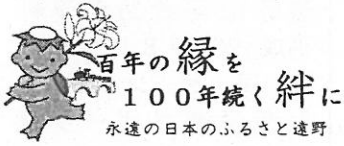 百年の縁を
１００年続く絆に
永遠の日本のふるさと遠野